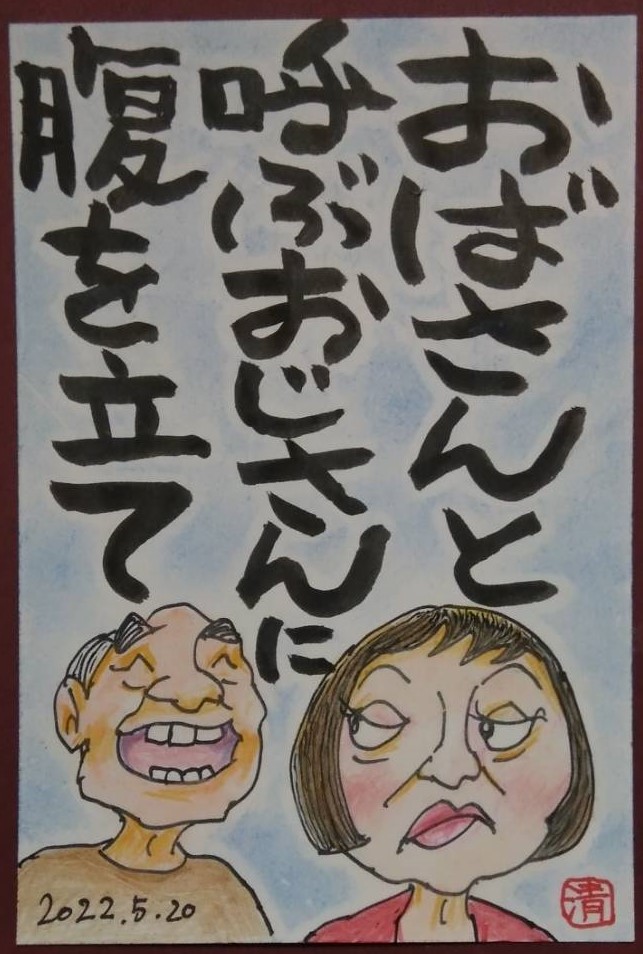 おばさんと
呼ぶおじさんに
腹を立て
2022.5.20
清